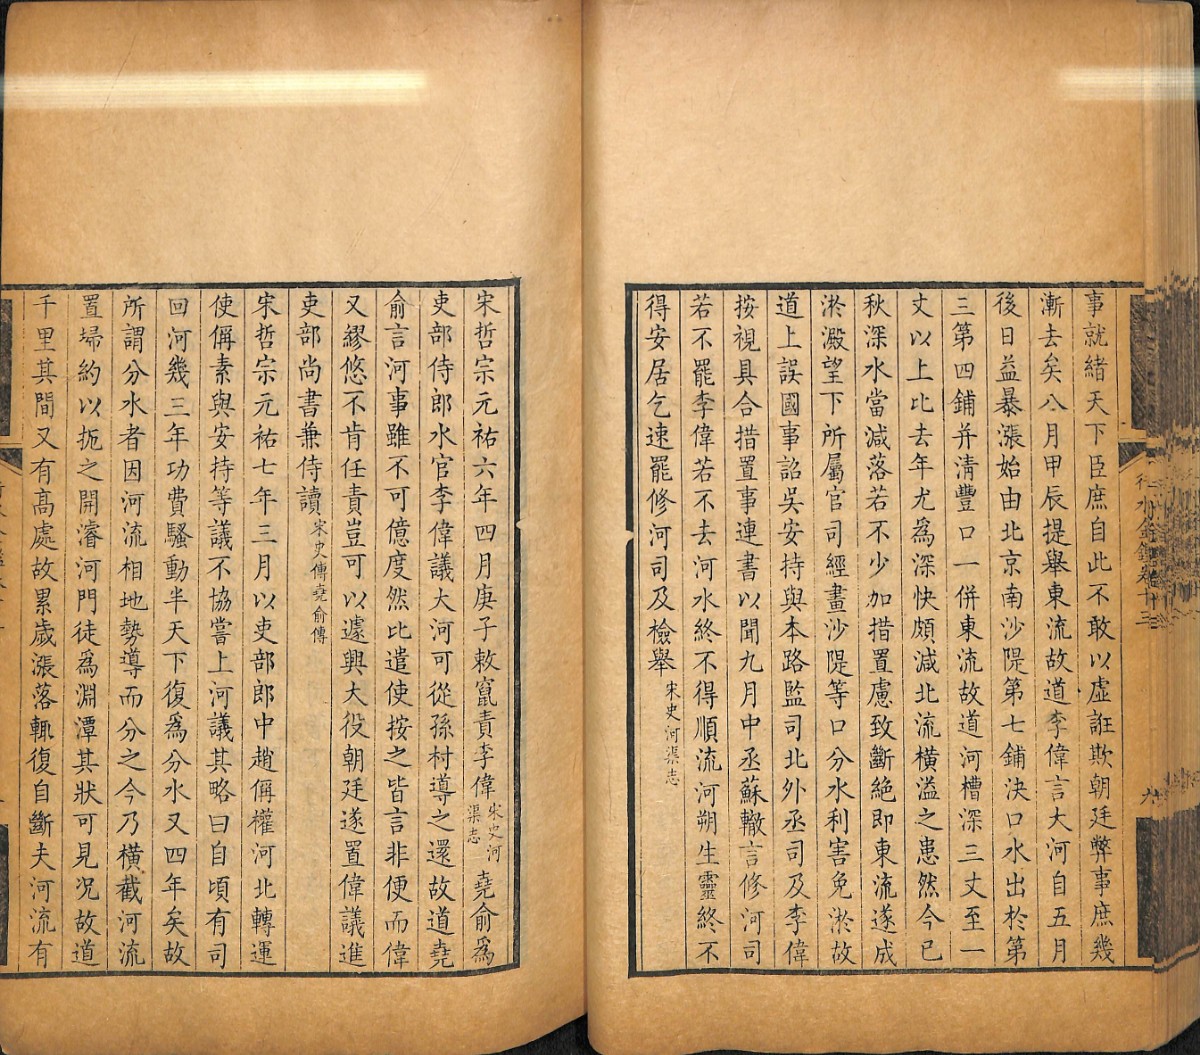 事就緒天下臣庶自此不敢以虛誑欺朝廷弊事庶幾
漸去矣八月甲辰提舉東流故道李偉言大河自五月
後日益暴漲始由北京南沙隄第七鋪決口水出於第
三第四鋪并清豐口一併東流故道河槽深三丈至一
丈以上比去年尤爲深快頗減北流橫溢之患然今已
秋深水當減落若不少加措置慮致斷絕即東流遂成
淤澱望下所屬官司經畫沙隄等口分水利害免淤故
道上誤國事詔吳安持與本路監司北外丞司及李偉
按視具合措置事連書以聞九月中丞蘇轍言修河司
若不罷李偉若不去河水終不得順流河朔生靈終不
得安居乞速罷修河司及檢舉宋史河渠志
宋哲宗元祐六年四月庚子敕竄責李偉宋史河渠志堯俞爲
吏部侍郎水官李偉議大河可從孫村導之還故道堯
俞言河事雖不可億度然比遣使按之皆言非便而偉
又繆悠不肯任責豈可以遽興大役朝廷遂置偉議進
吏部尚書兼侍讀宋史傅堯俞傳
宋哲宗元祐七年三月以吏部郎中趙偁權河北轉運
使偁素與安持等議不協嘗上河議其略曰自頃有司
回河幾三年功費騷動半天下復爲分水又四年矣故
所謂分水者因河流相地勢導而分之今乃橫截河流
置埽約以扼之開濬河門徒爲淵潭其狀可見況故道
千里其間又有高處故累歲漲落輒復自斷夫河流有